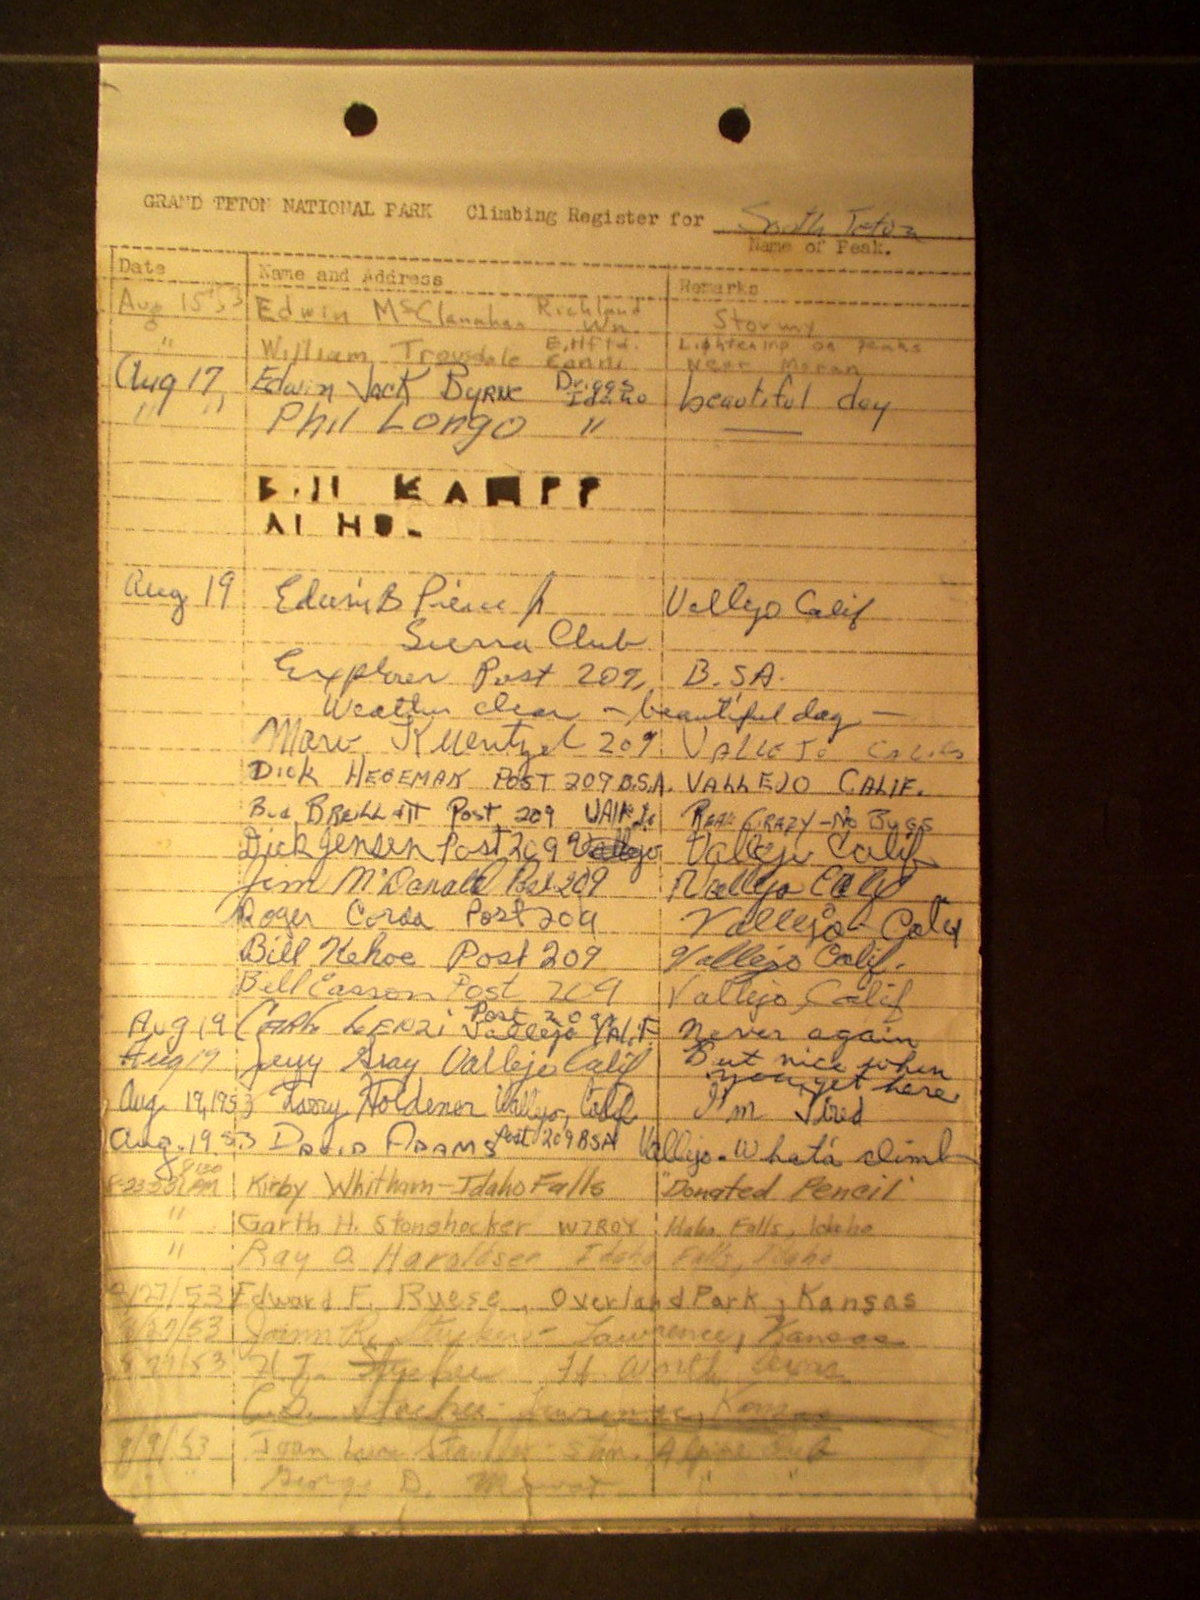 GRAND TETON NATIONAL PARK Climbing Register for South Teton
Name of Peak.
Date Name and Address Remarks
Aug 15 '53 Edwin McClanahan Richland Wn. Stormy
" William Trousdale E.Hftd. Conn Lightening on peaks near Moran
Aug 17, Edwin Jack Byrne Driggs Idaho beautiful day
" " Phil Longo "
Bill KAMPP
Al
Aug 19 Edwin B Pierce Jr Vallejo Calif
Sierra Club
Explorer Post 209, B.S.A.
Weather clear - beautiful day -
Marv Kuentzel 209 VALLEJO CALIF
DICK HEGEMAN POST 209 B.S.A. VALLEJO CALIF.
Bud Post 209 REAL CRAZY - NO BUGS
Dick Jensen Post 209 Vallejo Vallejo Calif
Jim McDonald Post 209 Vallejo Calif
Roger Corda Post 209 Vallejo Calif
Bill Kehoe Post 209 Vallejo Calif.
Bill Easson Post 209 Vallejo, Calif
Aug 19 Carl LENZI Post 209 Vallejo CALIF Never again
Aug 19 Jerry Gray Vallejo Calif But nice when you get here
Aug 19, 1953 Larry Holdener Vallejo, Calif I'm Tired
Aug. 19. 53 DAVID ADAMS Post 209 BSA Vallejo. What a climb
Kirby Whitham - Idaho Falls "Donated Pencil"
" Garth H. Stonehocker W7ROY Idaho Falls, Idaho
" Ray O. Haroldsen Idaho Falls, Idaho
8/27/53 Edward F. Ruese, Overland Park, Kansas
8/27/53 John R. Lawrence, Kansas
8/27/53 H. T. Ft. Worth Texas
C.D. Lawrence, Kansas
9/9/53 Joan Stan. Alpine Club
" George D. " "